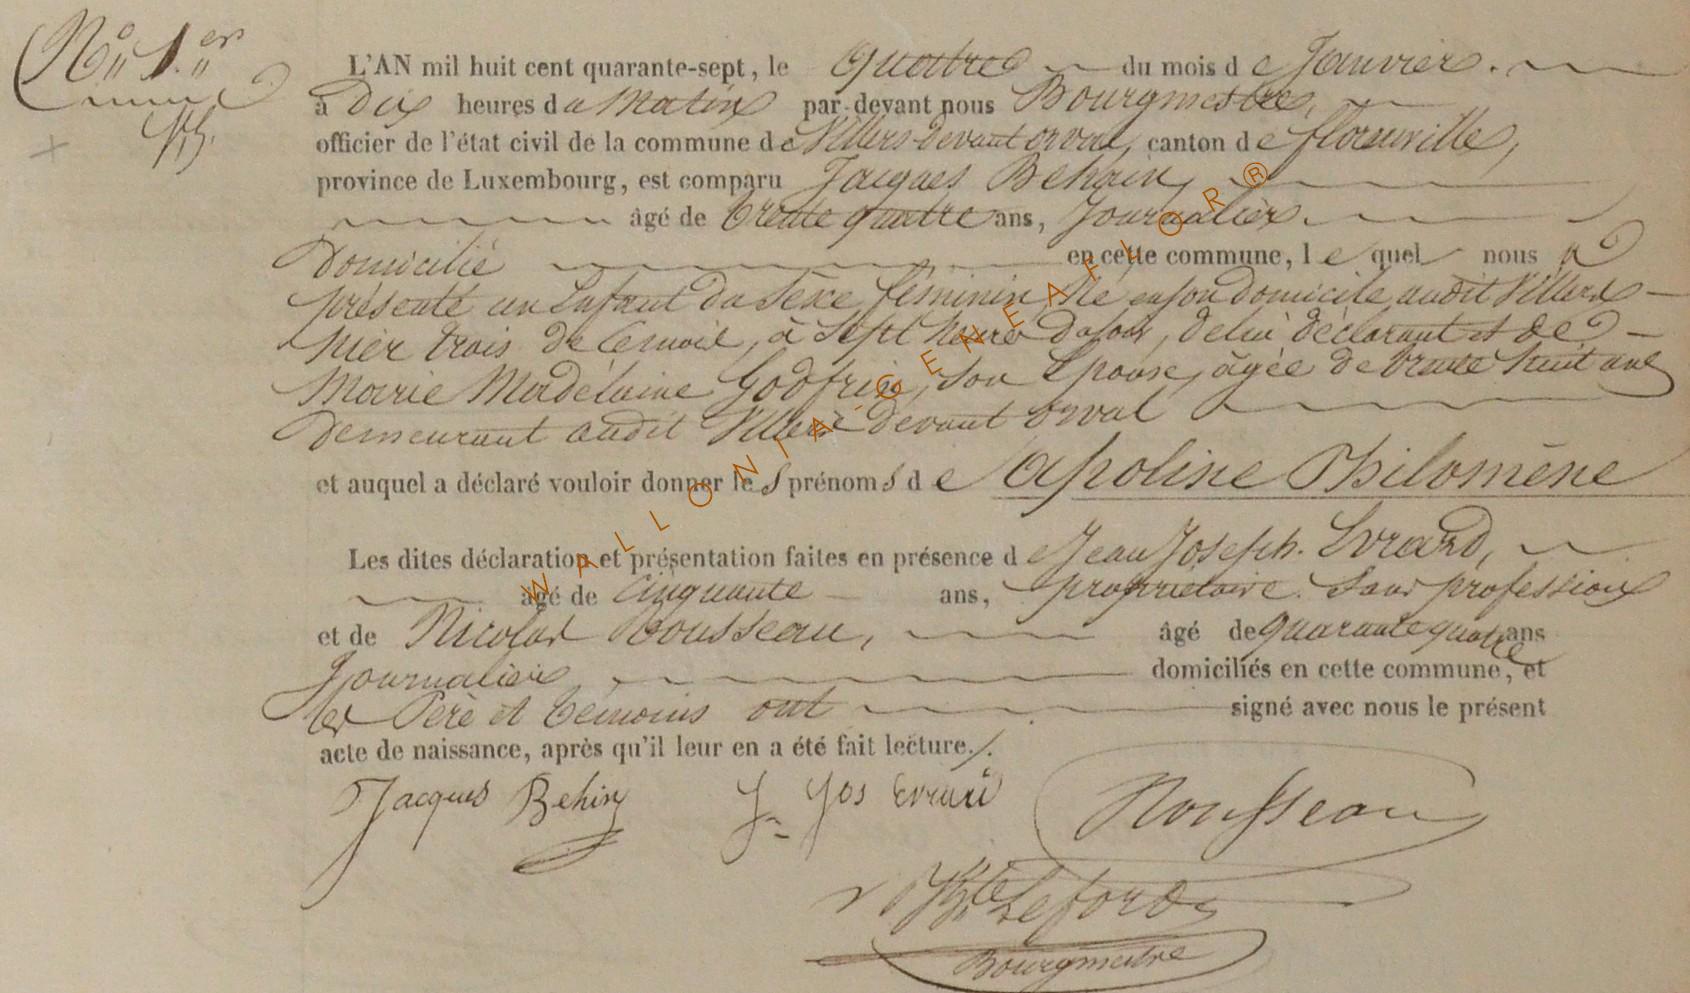 N° 1.er
L'AN mil huit cent quarante-sept, le quatre du mois de Janvier.
à Dix heures du Matin par-devant nous Bourgmestre,
officier de l'état civil de la commune de Villers-devant orval, canton de florenville,
province de Luxembourg, est comparu Jacques Behain,
âgé de trente quatre ans, Journalier.
Domicilié en cette commune, lequel nous a
présenté un Enfant du Sexe féminin, Né en son domicile audit Villers
hier trois de ce mois, à Sept heures du soir, de lui déclarant et de
Marie Madelaine Godfrin, son Epouse, âgée de trente huit ans
Demeurant audit Villers devant orval
et auquel a déclaré vouloir donner les prénoms de Apoline Philomène
Les dites déclaration et présentation faites en présence de Jean Joseph. Evrard,
âgé de cinquante ans, propriétaire. Sans profession
et de Nicolas Rousseau, âgé de quarante quatre ans
Journalier, domiciliés en cette commune, et
les Père et témoins ont signé avec nous le présent
acte de naissance, après qu'il leur en a été fait lecture./.
Jacques Behin J Jos Evrard Rousseau
Leford
Bourgmestre
WALLONIA-GENEAFLOR®